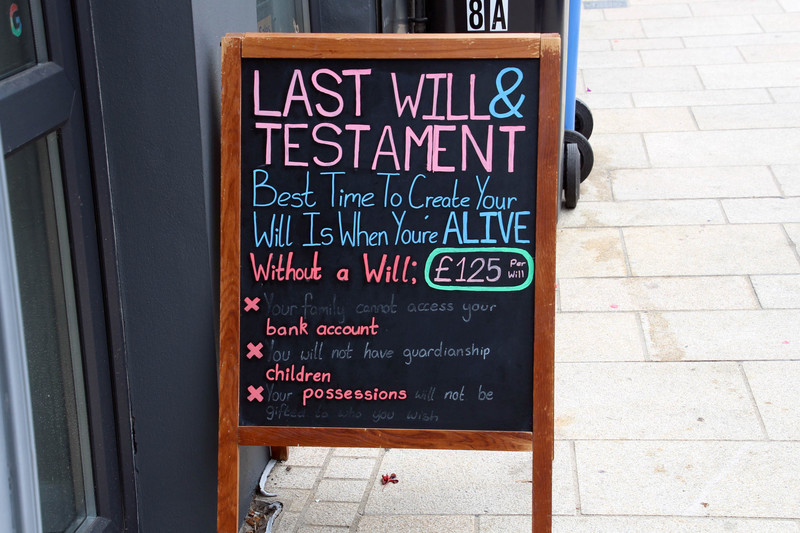 8A
LAST WILL &
TESTAMENT
Best Time To Create Your
Will Is When You're ALIVE
Without a Will; £125 Per Will
Your family cannot access your
bank account
You will not have guardianship
children
Your possessions will not be
gifted to who you wish
G